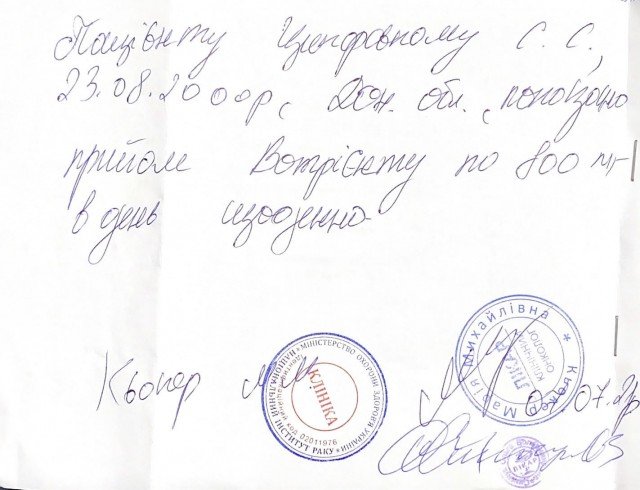 Пацієнту С. С.,
23.08.2000р, Дон. обл., показано
прийом Вотрієнту по 800 мг
в день щоденно
Кьокер М М
МІНІСТЕРСТВО ОХОРОНИ ЗДОРОВ'Я УКРАЇНИ * НАЦІОНАЛЬНИЙ ІНСТИТУТ РАКУ *
код 02011976
КЛІНІКА
* Кьокер Марія Михайлівна
ЛІКАР
КЛІНІЧНИЙ
ОНКОЛОГ